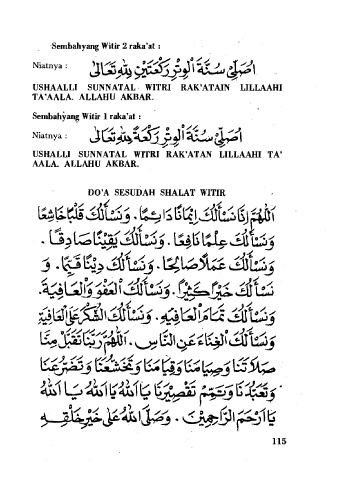 Sembahyang Witir 2 raka'at :
Niatnya : اُصَلِّيْ سُنَّةَ الْوِتْرِ رَكْعَتَيْنِ لِلّٰهِ تَعَالَى
USHAALLI SUNNATAL WITRI RAK'ATAIN LILLAAHI
TA'AALA. ALLAHU AKBAR.
Sembahyang Witir 1 raka'at :
Niatnya : اُصَلِّيْ سُنَّةَ الْوِتْرِ رَكْعَةً لِلّٰهِ تَعَالَى
USHALLI SUNNATAL WITRI RAK'ATAN LILLAAHI TA'
AALA. ALLAHU AKBAR.
DO'A SESUDAH SHALAT WITIR
اَللّٰهُمَّ اِنَّا نَسْأَلُكَ اِيْمَانًا دَائِمًا. وَنَسْأَلُكَ قَلْبًا خَاشِعًا
وَنَسْأَلُكَ عِلْمًا نَافِعًا. وَنَسْأَلُكَ يَقِيْنًا صَادِقًا.
وَنَسْأَلُكَ عَمَلًا صَالِحًا. وَنَسْأَلُكَ دِيْنًا قَيِّمًا. وَ
نَسْأَلُكَ خَيْرًا كَثِيْرًا. وَنَسْأَلُكَ الْعَفْوَ وَالْعَافِيَةَ.
وَنَسْأَلُكَ تَمَامَ الْعَافِيَةِ. وَنَسْأَلُكَ الشُّكْرَ عَلَى الْعَافِيَةِ
وَنَسْأَلُكَ الْغِنَاءَ عَنِ النَّاسِ. اَللّٰهُمَّ رَبَّنَا تَقَبَّلْ مِنَّا
صَلَاتَنَا وَصِيَامَنَا وَقِيَامَنَا وَتَخَشُّعَنَا وَتَضَرُّعَنَا
وَتَعَبُّدَنَا وَتَمِّمْ تَقْصِيْرَنَا يَا اَللّٰهُ يَا اَللّٰهُ يَا اَللّٰهُ
يَا اَرْحَمَ الرَّاحِمِيْنَ. وَصَلَّى اللّٰهُ عَلَى خَيْرِ خَلْقِهِ
115